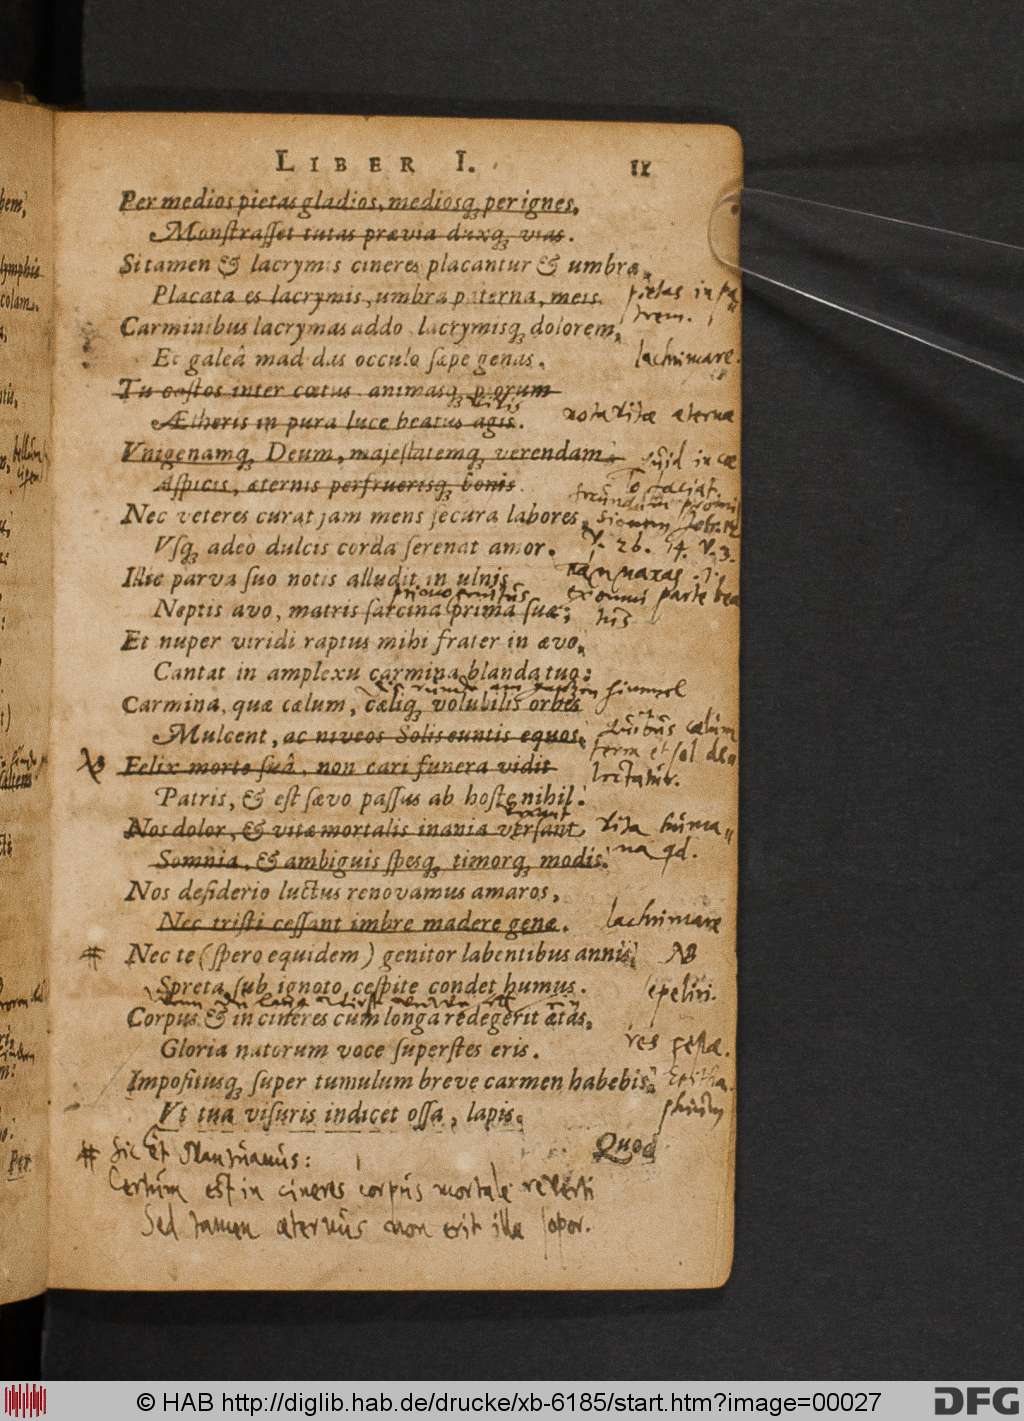 LIBER I. 11
Per medios pietas gladios, mediosq; per ignes,
Monstrasset tutas prævia duxq; vias.
Si tamen & lacrymis cineres placantur & umbræ,
Placata es lacrymis, umbra paterna, meis.
pietas in pa„
trem.
Carminibus lacrymas addo, lacrymisq; dolorem,
Et galeâ madidas occulo sæpe genas.
lachrimare.
Tu castos inter cœtus animasq; piorum
Ætheris in pura luce beatus agis.
nota vitæ æternæ
Unigenamq; Deum, majestatemq; verendam
Aspicis, æternis perfruerisq; bonis.
quid in cæ
lo faciat.
Nec veteres curat jam mens secura labores,
Usq; adeo dulcis corda serenat amor.
v. 26. 14. v. 3.
Illic parva suo notis alludit in ulnis
Neptis avo, matris sarcina prima suæ;
ex omni parte bea
tus
Et nuper viridi raptus mihi frater in ævo,
Cantat in amplexu carmina blanda tuo:
Carmina, quæ cælum, cæliq; volubilis orbes
Mulcent, ac niveos Solis euntis equos.
quibus cælum
terra et sol de„
lectatur.
NB Felix morte suâ, non cari funera vidit
Patris, & est sævo passus ab hoste nihil.
Nos dolor, & vitæ mortalis inania versant
Somnia, & ambiguis spesq; timorq; modis.
vita huma„
na qd.
Nos desiderio luctus renovamus amaros,
Nec tristi cessant imbre madere genæ.
lachrimare
# Nec te (spero equidem) genitor labentibus annis
NB
Spreta sub ignoto cespite condet humus.
sepeliri.
Corpus & in cineres cum longa redegerit ætas,
Gloria natorum voce superstes eris.
res gestæ.
Impositusq; super tumulum breve carmen habebis,
Ut tua visuris indicet ossa, lapis.
Epitha„
phium
Quod
# Sic et Nauhianus:
Certum est in cineres corpus mortale reverti
Sed tamen æternus non erit ille sopor.
© HAB http://diglib.hab.de/drucke/xb-6185/start.htm?image=00027
DFG